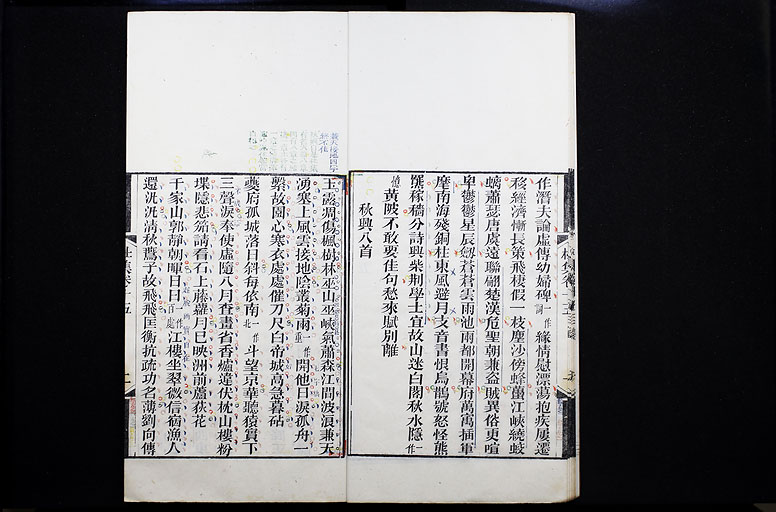 作潛夫論虛傳幼婦碑一作詞緣情慰漂蕩抱疾屢遷
移經濟慚長策飛棲假一枝塵沙傍蜂蠆江峽繞蛟
螭蕭瑟唐虞遠聯翩楚漢危聖朝兼盜賊異俗更喧
卑鬱鬱星辰劍蒼蒼雲雨池兩都開幕府萬寓插軍
麾南海殘銅柱東風避月支音書恨烏鵲號怒怪熊
羆稼穡分詩興柴荊學土宜故山迷白閣秋水隱一作
憶黃陂不敢要佳句愁來賦別離
秋興八首
玉露凋傷楓樹林巫山巫峽氣蕭森江間波浪兼天
湧塞上風雲接地陰叢菊兩一作重開他日淚孤舟一
繫故園心寒衣處處催刀尺白帝城高急暮砧
夔府孤城落日斜每依南一作北斗望京華聽猿實下
三聲淚奉使虛隨八月查畫省香爐違伏枕山樓粉
堞隱悲笳請看石上藤蘿月已映洲前蘆荻花
千家山郭靜朝暉日日一作百處江樓坐翠微信宿漁人
還汎汎清秋燕子故飛飛匡衡抗疏功名薄劉向傳
杜集卷十五
二